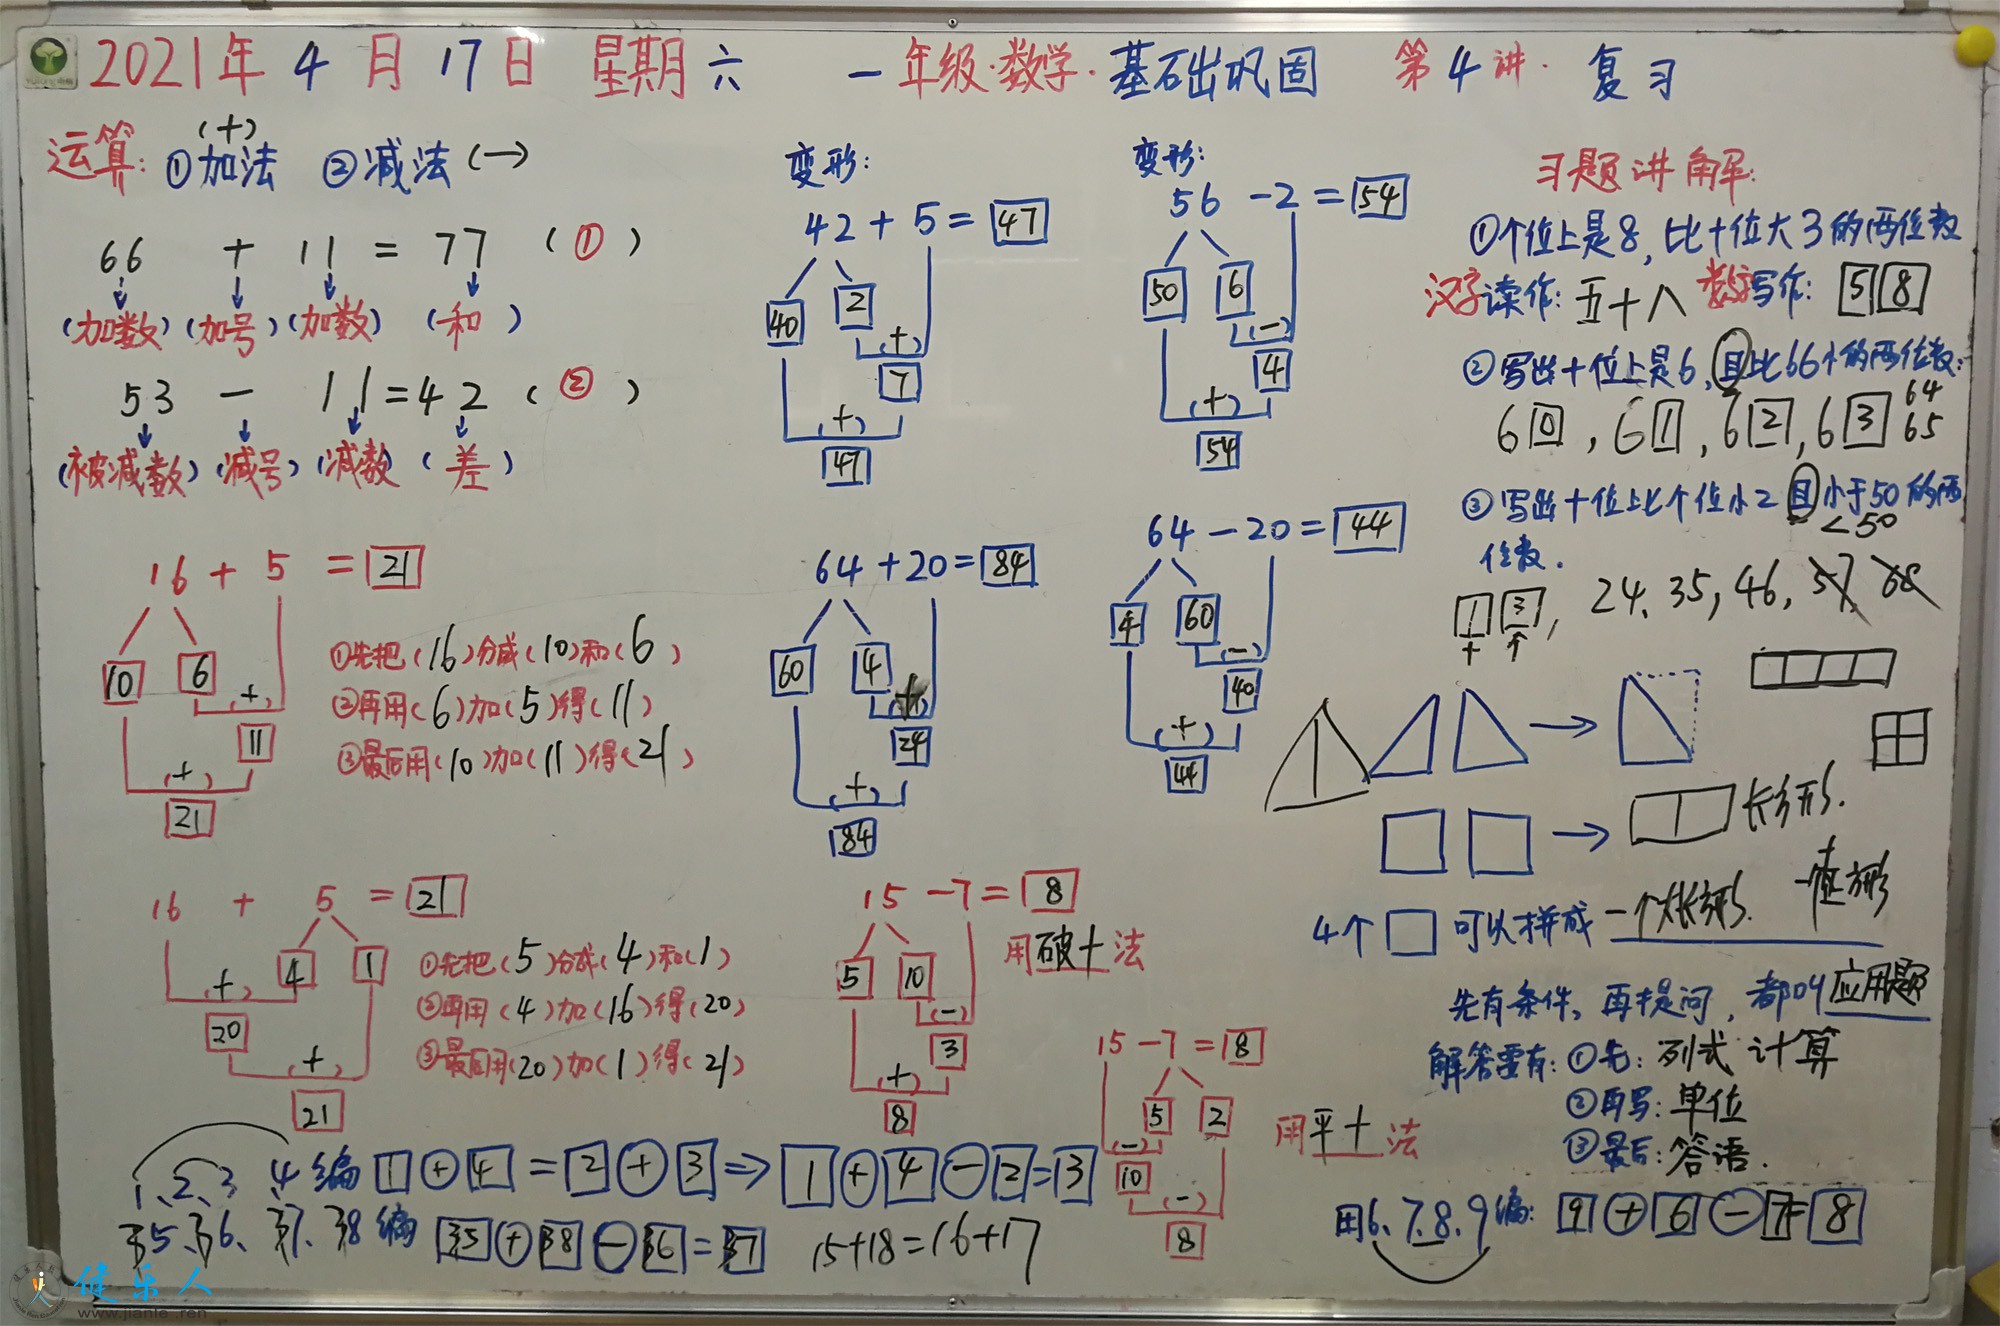 2021年 4 月 17日 星期六 一年级·数学·基础出巩固 第4讲· 复习
运算: ①加法 ②减法(一)
(十)
66 + 11 = 77 (①)
(加数)(加号)(加数) (和)
53 - 11 = 42 (②)
(被减数)(减号)(减数)(差)
16 + 5 = 21
10 6 (+)
11
(+)
21
①先把(16)分成(10)和(6)
②再用(6)加(5)得(11)
③最后用(10)加(11)得(21)
16 + 5 = 21
4 1
(+)
20
(+)
21
①先把(5)分成(4)和(1)
②再用(4)加(16)得(20)
③最后用(20)加(1)得(21)
变形:
42 + 5 = 47
40 2
(+)
7
(+)
47
64 + 20 = 84
60 4
24
(+)
84
15 - 7 = 8
用破十法
5 10
(-)
3
(+)
8
变形:
56 - 2 = 54
50 6
(-)
4
(+)
54
64 - 20 = 44
4 60
(-)
40
(+)
44
15 - 7 = 8
5 2
(-)
10
(-)
8
用平十法
习题讲解:
①个位上是8, 比十位大3的两位数
汉字读作: 五十八 数字写作: 58
②写出十位上是6, 且比66小的两位数:
60, 61, 62, 63 64
65
③写出十位上比个位小2且小于50的两
<50
位数.
13, 24、35, 46, 57, 68
长方形.
4个□可以拼成一个大长方形. 一个正方形
先有条件, 再提问, 都叫应用题
解答需有: ①先: 列式 计算
②再写: 单位
③最后: 答语.
用6、7.8.9编: 9+6-7=8
1、2、3、4编 1+4=2+3⇒1+4-2=3
35、36、37、38编 35+38-36=37 15+18=16+17
健乐人
www.jianle.ren